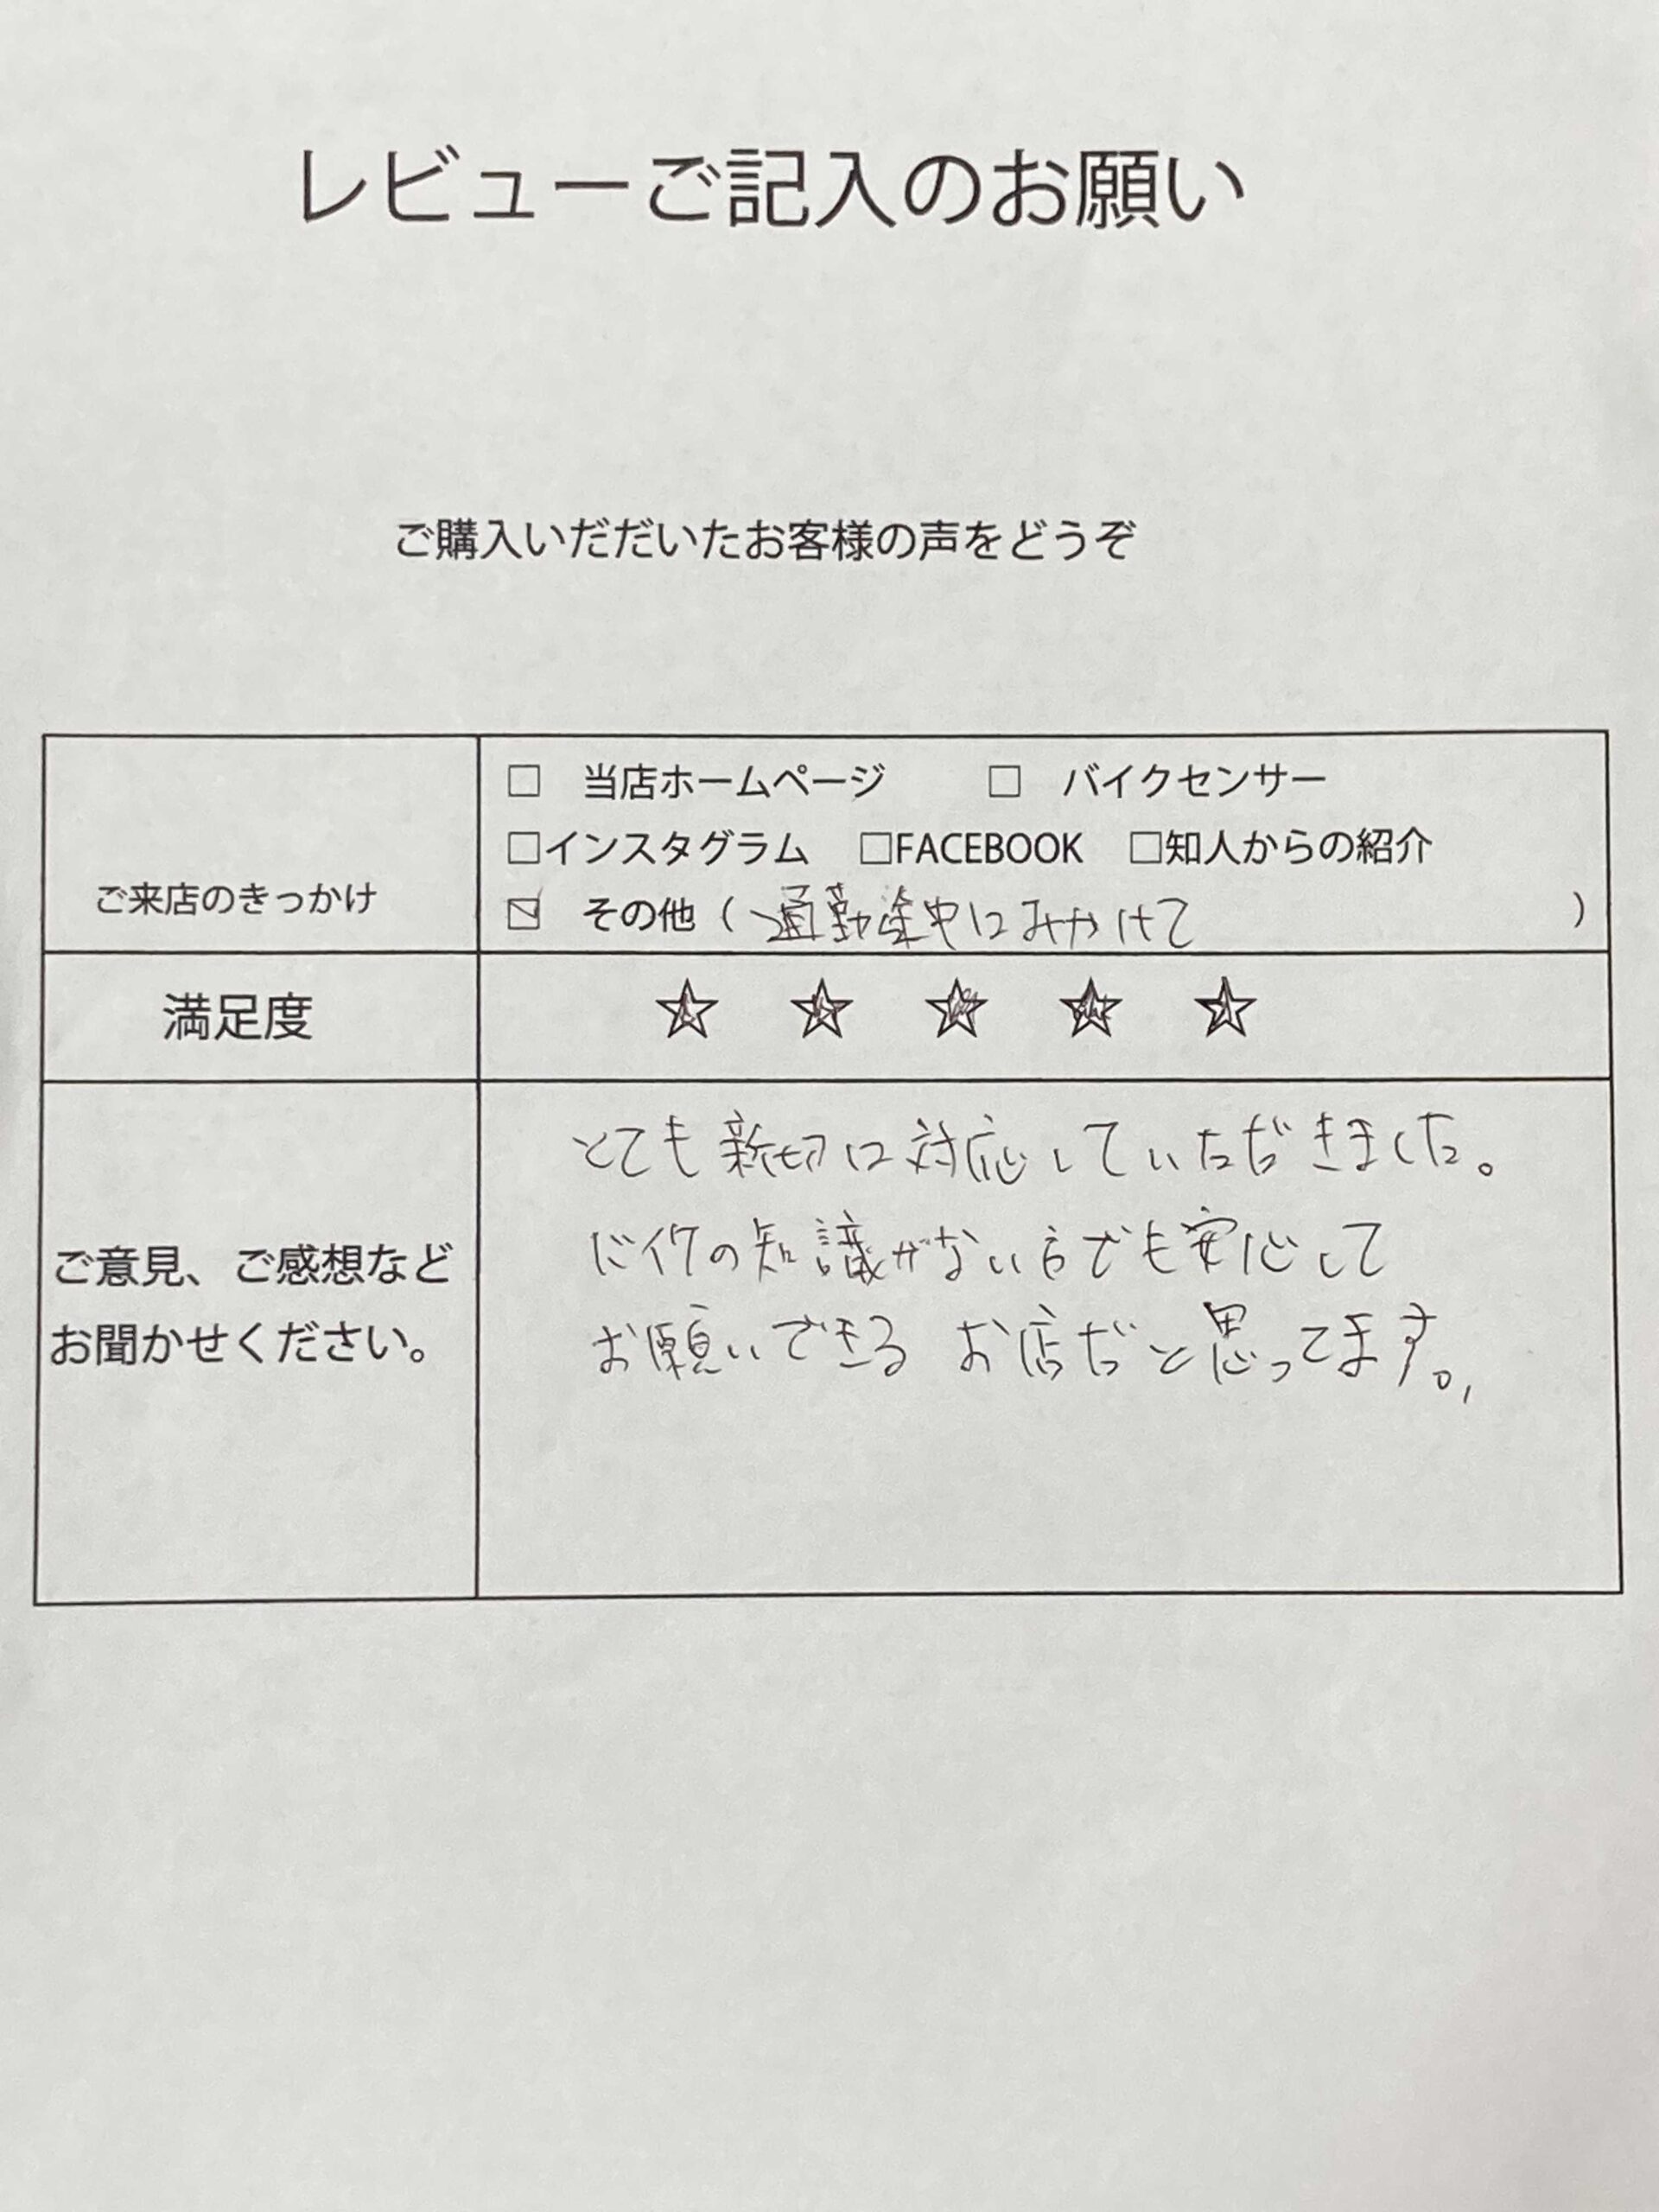 レビューご記入のお願い
ご購入いだだいたお客様の声をどうぞ
ご来店のきっかけ
□ 当店ホームページ □ バイクセンサー
□インスタグラム □FACEBOOK □知人からの紹介
☑ その他（通勤途中にみかけて）
満足度
☆ ☆ ☆ ☆ ☆
ご意見、ご感想など
お聞かせください。
とても親切に対応していただきました。
バイクの知識がない方でも安心して
お願いできるお店だと思ってます。